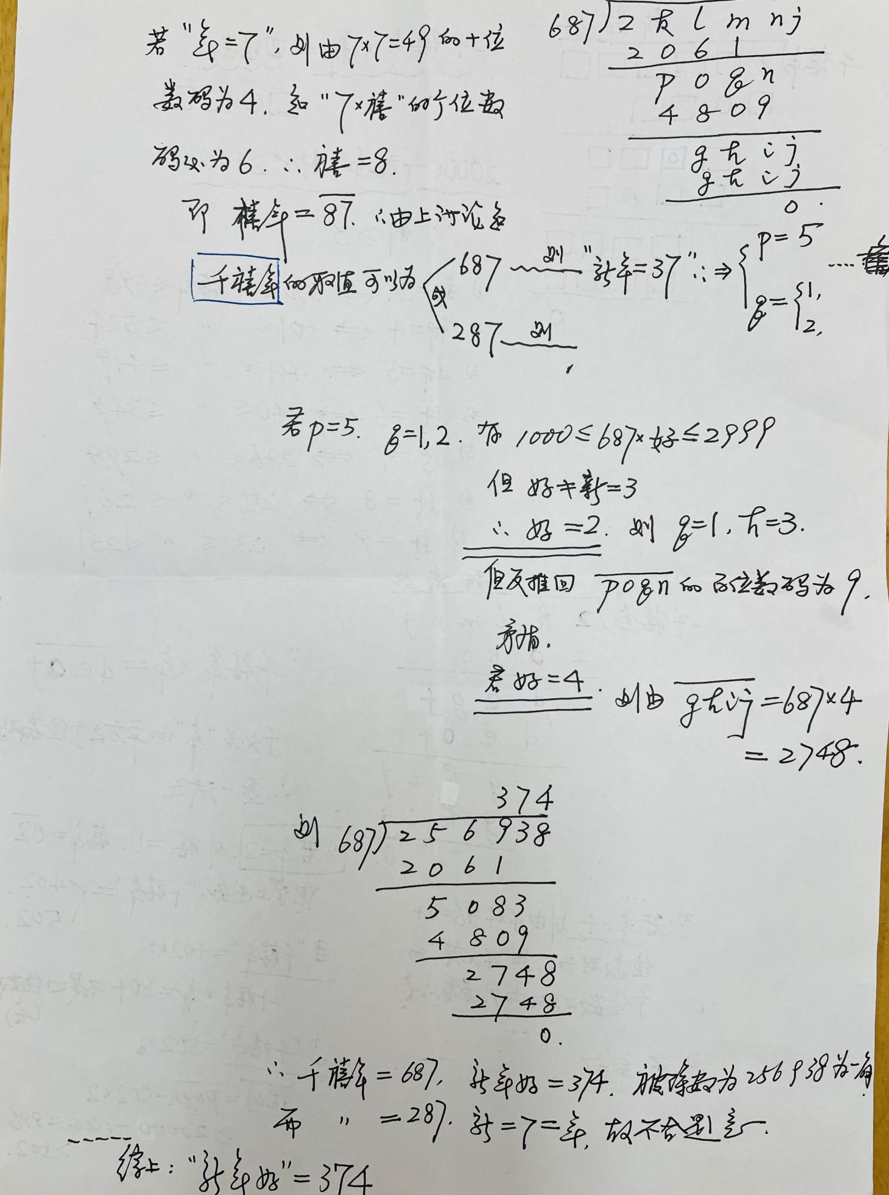 若"年=7",则由7×7=49的十位
数码为4.知"7×禧"的个位数
码必为6.∴禧=8.
即 禧年=87.∴由上讨论知
千禧年的取值可以为
或
687 则 "新年=37"∴⇒ { p=5 ……
g={1,
2,
287 则
,
687)2 k l m n j
2 0 6 1
p 0 g n
4 8 0 9
g h i j
g h i j
0.
若p=5. g=1,2. 有 1000≤687×好≤2999
但 好≠新=3
∴好=2. 则 g=1, h=3.
但反推回 p0gn的百位数码为9,
矛盾.
若好=4. 则由 ghij=687×4
=2748.
374
则 687)256938
2061
5083
4809
2748
2748
0.
∴千禧年=687, 新年好=374. 被除数为256938为一解
而 〃 =287. 新=7=年, 故不合题意.
综上:"新年好"=374